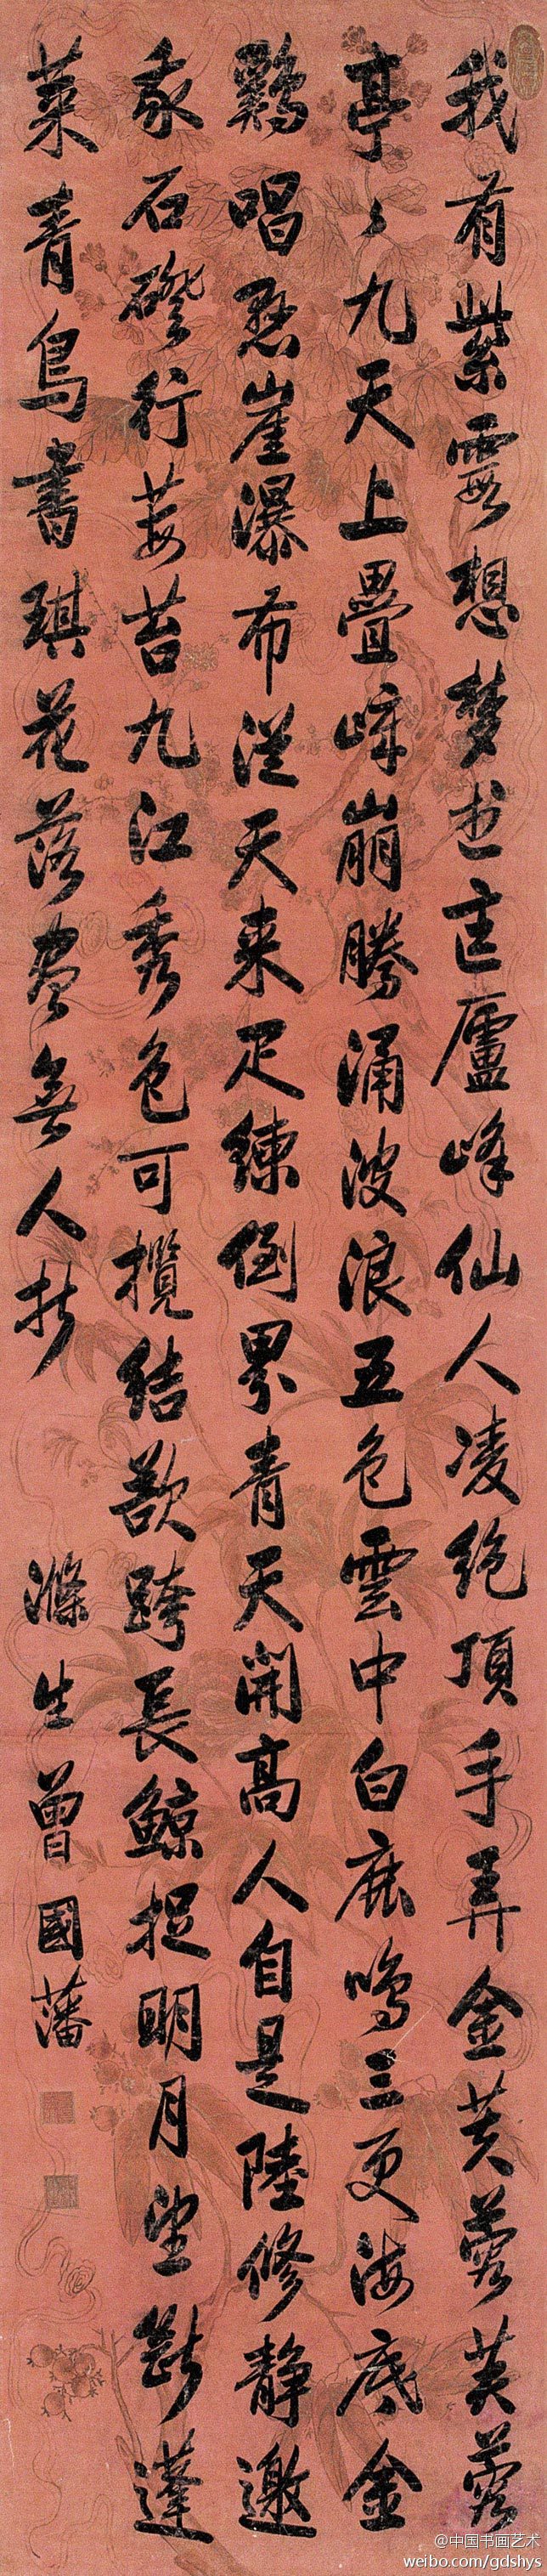 我有紫霞想夢出匡廬峰仙人凌絶頂手弄金芙蓉芙蓉
亭〻九天上疊嶂崩騰涌波浪五色雲中白鹿鳴三更海底金
鷄唱懸崖瀑布從天來疋練倒界青天開高人自是陸修静邀
我石磴行莓苔九江秀色可攬結欲跨長鯨捉明月望斷蓬
萊青鳥書琪花落盡無人折
滌生曾國藩
@中国书画艺术
weibo.com/gdshys